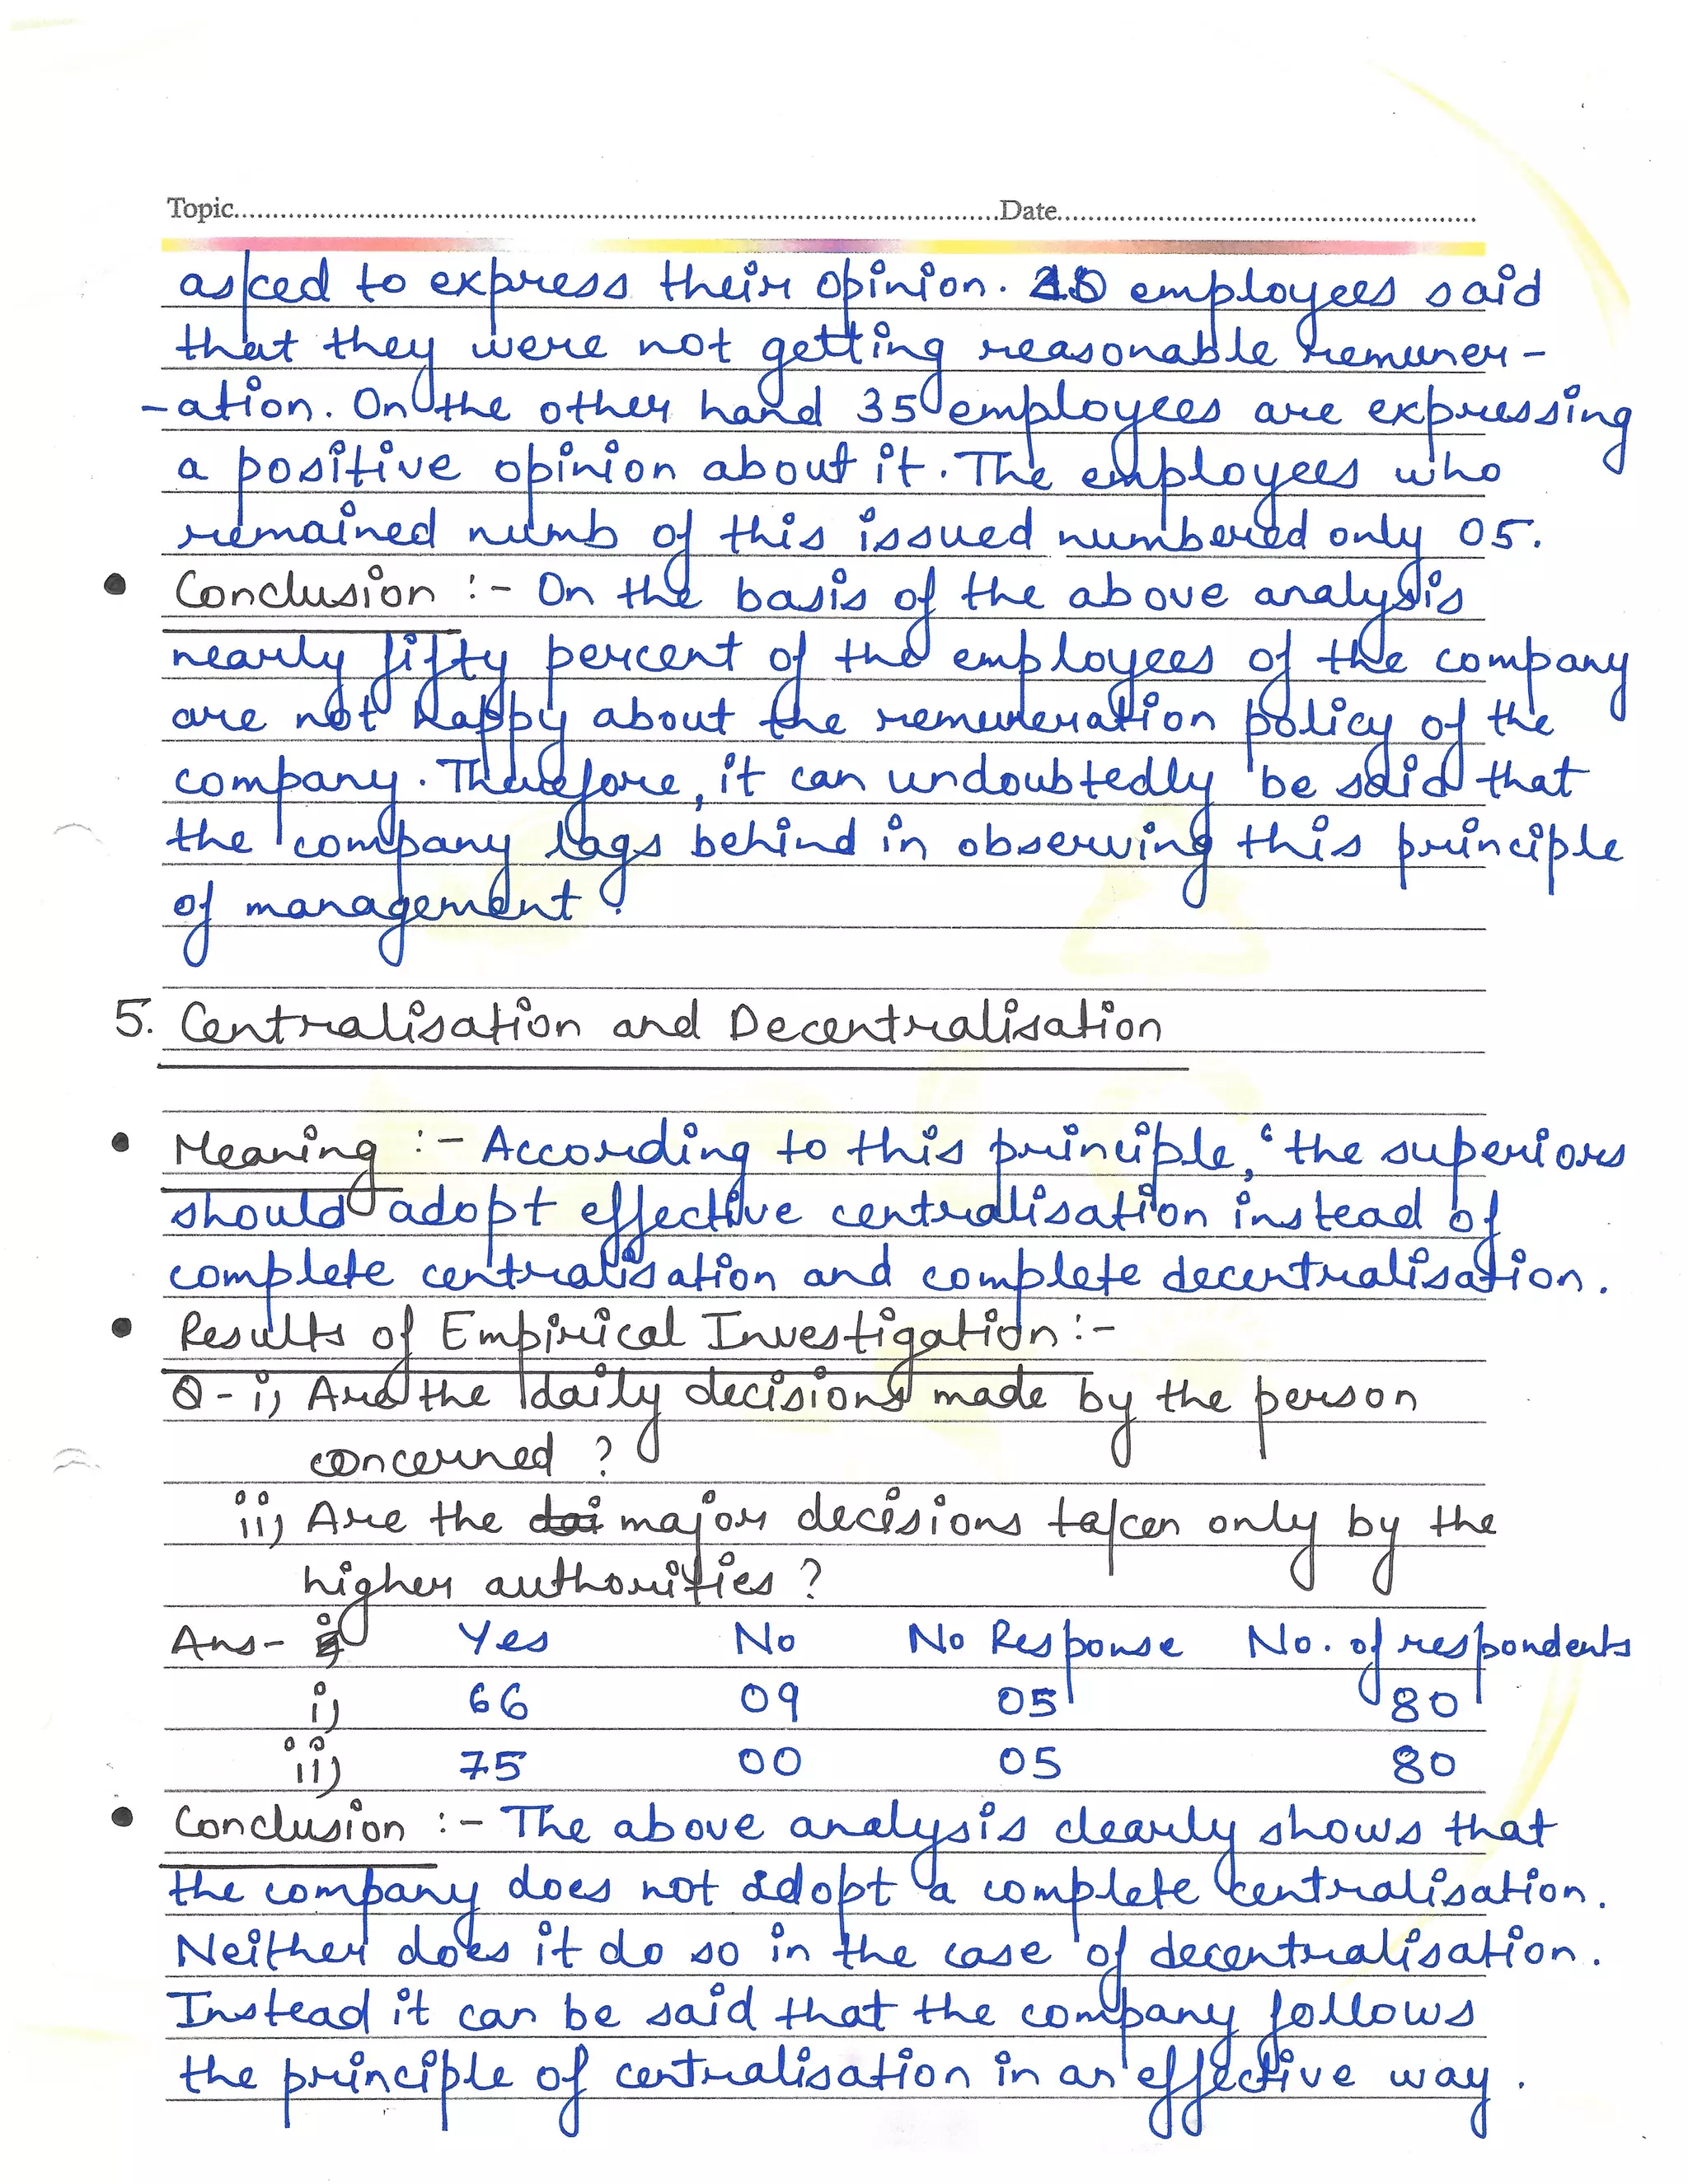 Topic Date
asked to express their opinion. employees said
that they were not getting reasonable remuner-
-ation. On the other hand 35 employees are expressing
a positive opinion about it. The employees who
remained numb of this issued numbered only 05.
• Conclusion :- On the basis of the above analysis
nearly fifty percent of the employees of the company
are not happy about the remuneration policy of the
company. Therefore, it can undoubtedly be said that
the company lags behind in observing this principle
of management.
5. Centralisation and Decentralisation
• Meaning :- According to this principle, ‘the superiors
should adopt effective centralisation instead of
complete centralisation and complete decentralisation.
• Results of Empirical Investigation :-
Q - i) Are the daily decisions made by the person
concerned ?
ii) Are the major decisions taken only by the
higher authorities ?
Ans- Yes No No Response No. of respondents
i) 66 09 05 80
ii) 75 00 05 80
• Conclusion :- The above analysis clearly shows that
the company does not adopt a complete centralisation.
Neither does it do so in the case of decentralisation.
Instead it can be said that the company follows
the principle of centralisation in an effective way.